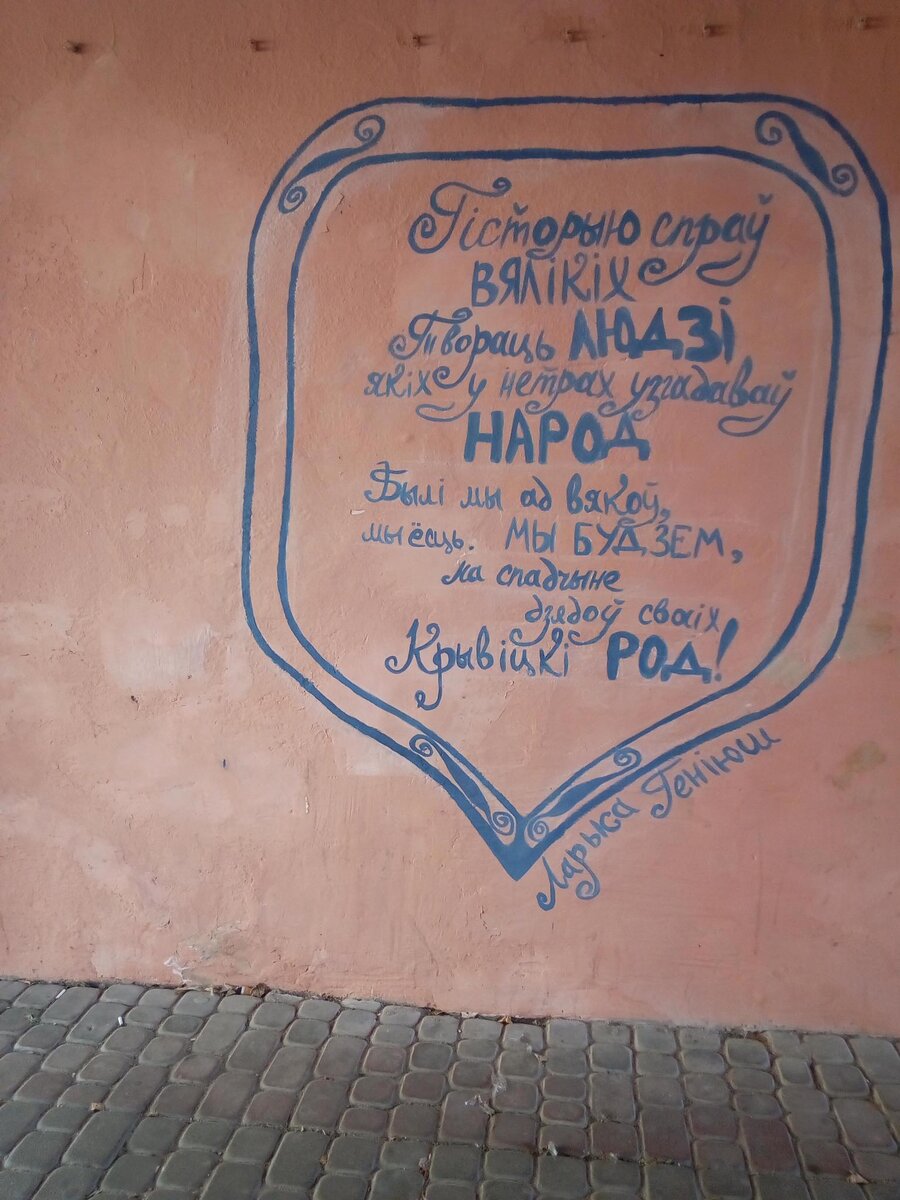 Гісторыю спраў
ВЯЛІКІХ
Твораць ЛЮДЗІ
якіх у нетрах узгадаваў
НАРОД
Былі мы ад вякоў,
мы ёсць. МЫ БУДЗЕМ,
на спадчыне
дзядоў сваіх
Крывіцкі РОД!
Ларыса Геніюш